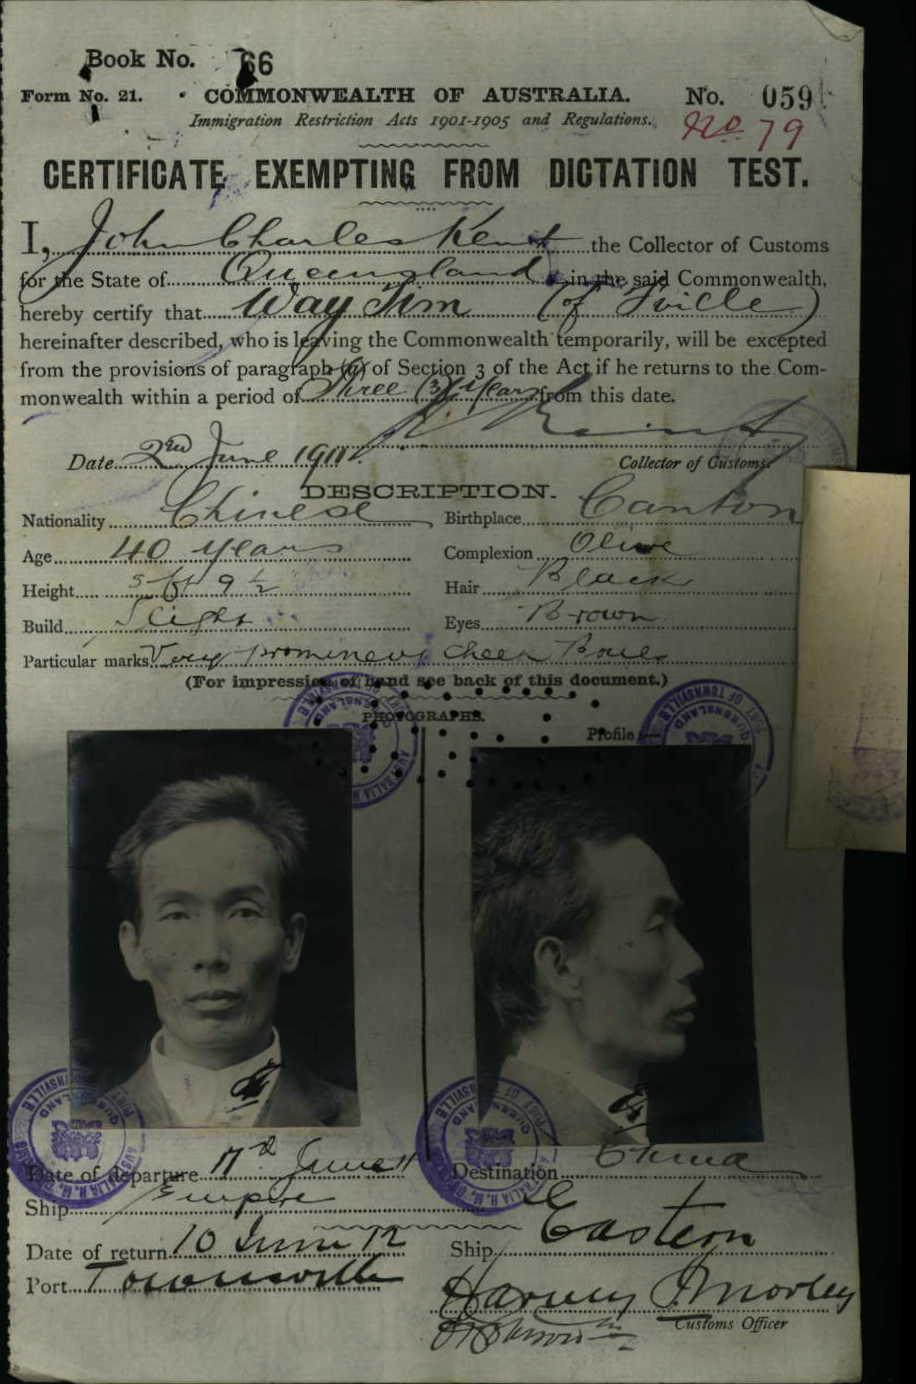 Book No. 66
Form No. 21. COMMONWEALTH OF AUSTRALIA. No. 059
Immigration Restriction Acts 1901-1905 and Regulations.
No. 79
CERTIFICATE EXEMPTING FROM DICTATION TEST.
I, John Charles Kent the Collector of Customs
for the State of Queensland in the said Commonwealth,
hereby certify that Way Tim (of Tville)
hereinafter described, who is leaving the Commonwealth temporarily, will be excepted
from the provisions of paragraph of Section 3 of the Act if he returns to the Com-
monwealth within a period of Three (3) years from this date.
Date 2nd June 1911
Collector of Customs.
DESCRIPTION.
Nationality Chinese Birthplace Canton
Age 40 years Complexion Olive
Height 5 ft 9 ½ Hair Black
Build Slight Eyes Brown
Particular marks Very prominent cheek Bones
(For impression of hand see back of this document.)
PHOTOGRAPHS.
Profile:—
PORT OF TOWNSVILLE
QUEENSLAND
Date of departure June 11 Destination China
Ship Empire
Date of return 10 June 12 Ship Eastern
Port Townsville
Harvey Morley
Customs Officer